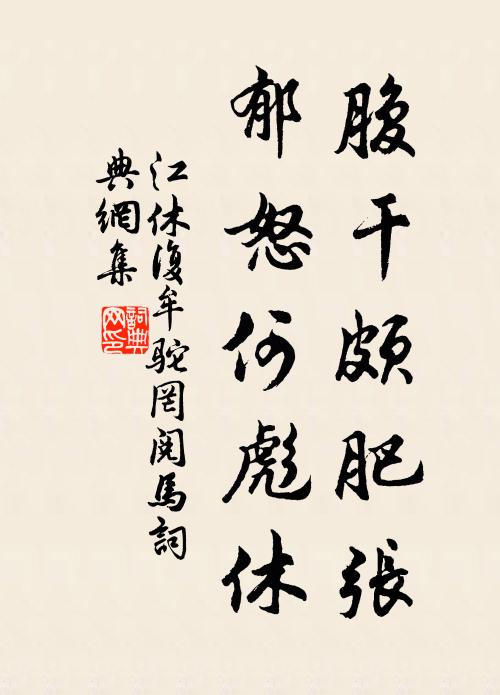 腹干頗肥張
郁怒何彪休
江休復牟駝罔閱馬詞
典網集
詞典
网印